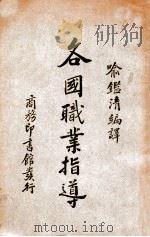 喻鑑清編譯
各國職業指導
商務印書館發行
www.toowoo.com